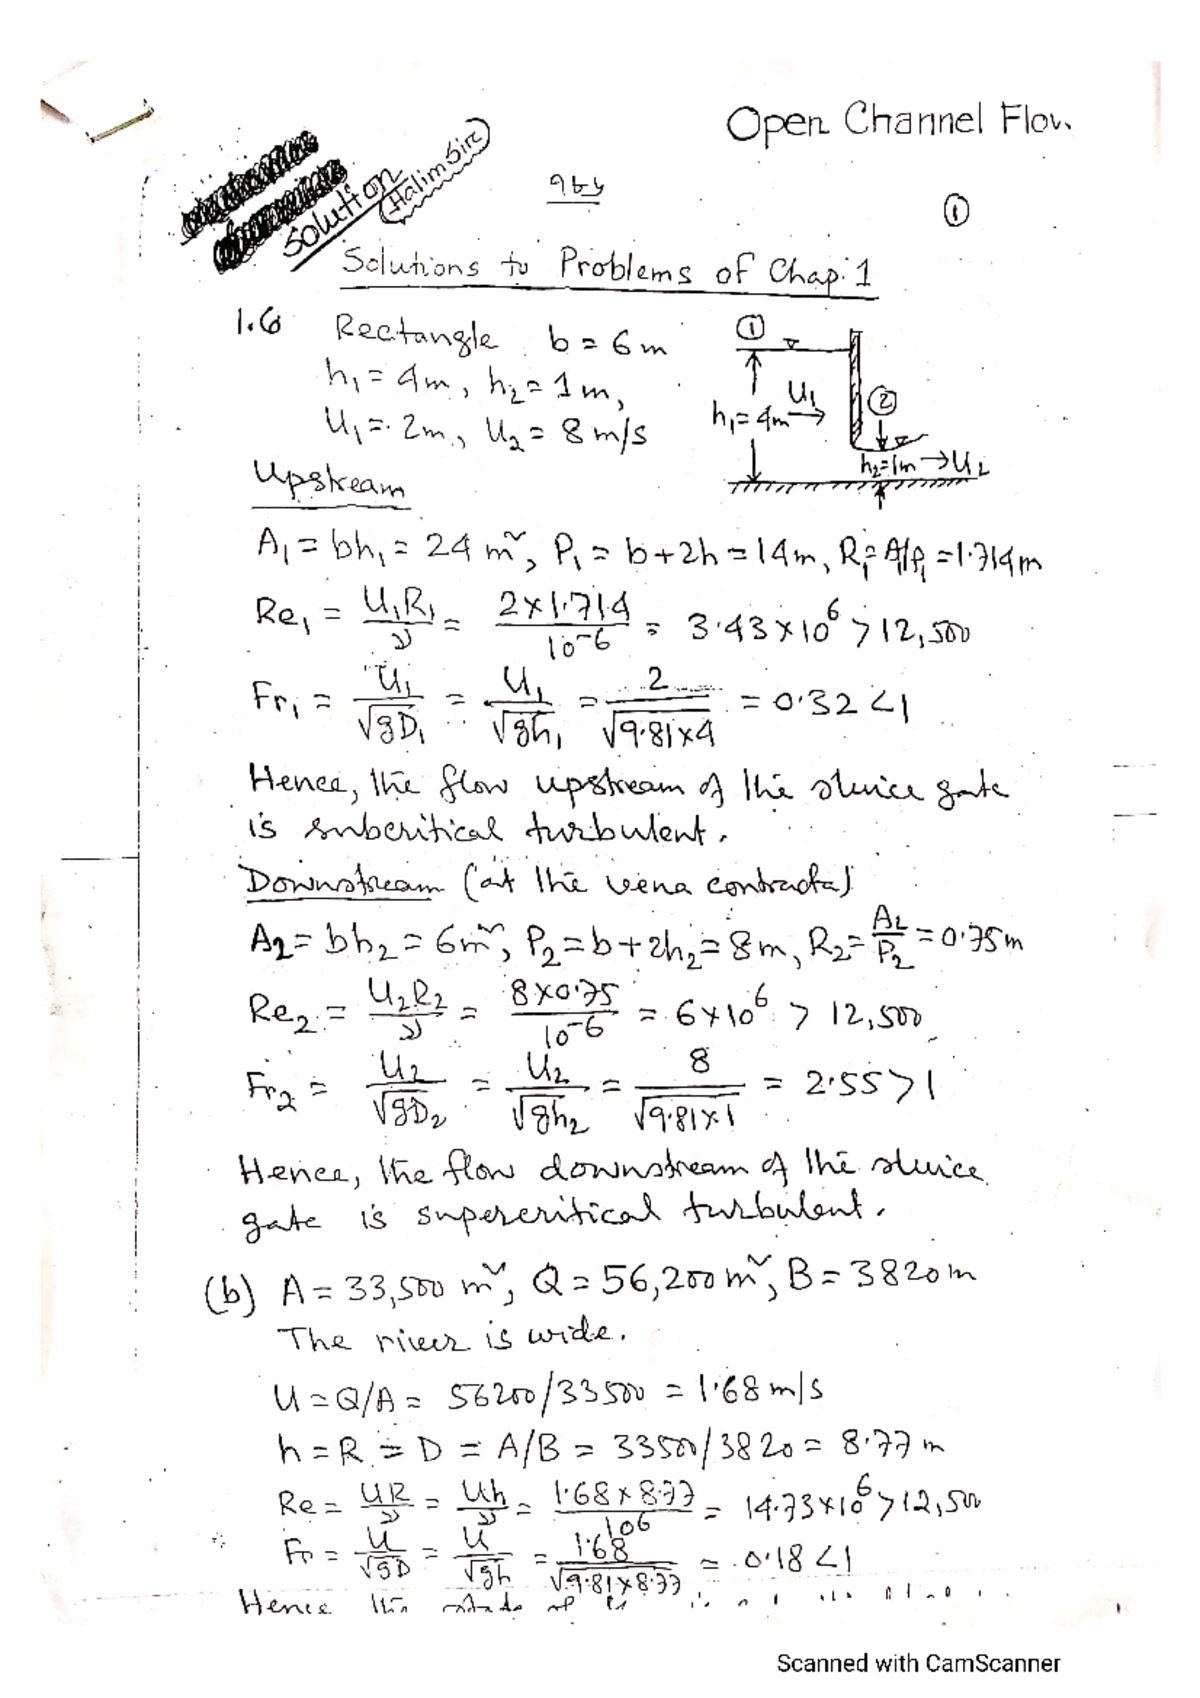 Open Channel Flow
Solution
Halim Sir
১
Solutions to Problems of Chap. 1
1.6 Rectangle b = 6 m
h₁ = 4m, h₂ = 1m,
U₁ = 2m, U₂ = 8 m/s
① U₁ h₁ = 4m ② h₂ = 1m → U₂
Upstream
A₁ = bh₁ = 24 m², P₁ = b + 2h = 14m, R₁ = A/P₁ = 1.714m
Re₁ = U₁R₁/ν = 2×1.714/10⁻⁶ = 3.43×10⁶ > 12,500
Fr₁ = U₁/√gD₁ = U₁/√gh₁ = 2/√9.81×4 = 0.32 < 1
Hence, the flow upstream of the sluice gate
is subcritical turbulent.
Downstream (at the vena contracta)
A₂ = bh₂ = 6m², P₂ = b + 2h₂ = 8m, R₂ = A₂/P₂ = 0.75m
Re₂ = U₂R₂/ν = 8×0.75/10⁻⁶ = 6×10⁶ > 12,500
Fr₂ = U₂/√gD₂ = U₂/√gh₂ = 8/√9.81×1 = 2.55 > 1
Hence, the flow downstream of the sluice
gate is supercritical turbulent.
(b) A = 33,500 m², Q = 56,200 m², B = 3820 m
The river is wide.
U = Q/A = 56200/33500 = 1.68 m/s
h = R = D = A/B = 33500/3820 = 8.77 m
Re = UR/ν = Uh/ν = 1.68×8.77/10⁶ = 14.73×10⁶ > 12,500
Fr = U/√gD = U/√gh = 1.68/√9.81×8.77 = 0.18 < 1
Hence the state of
Scanned with CamScanner